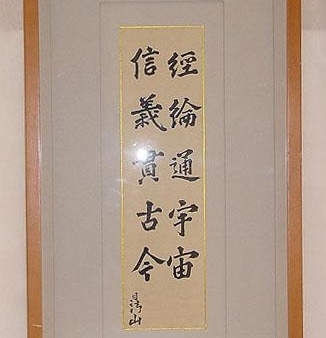 經綸通宇宙
信義貫古今